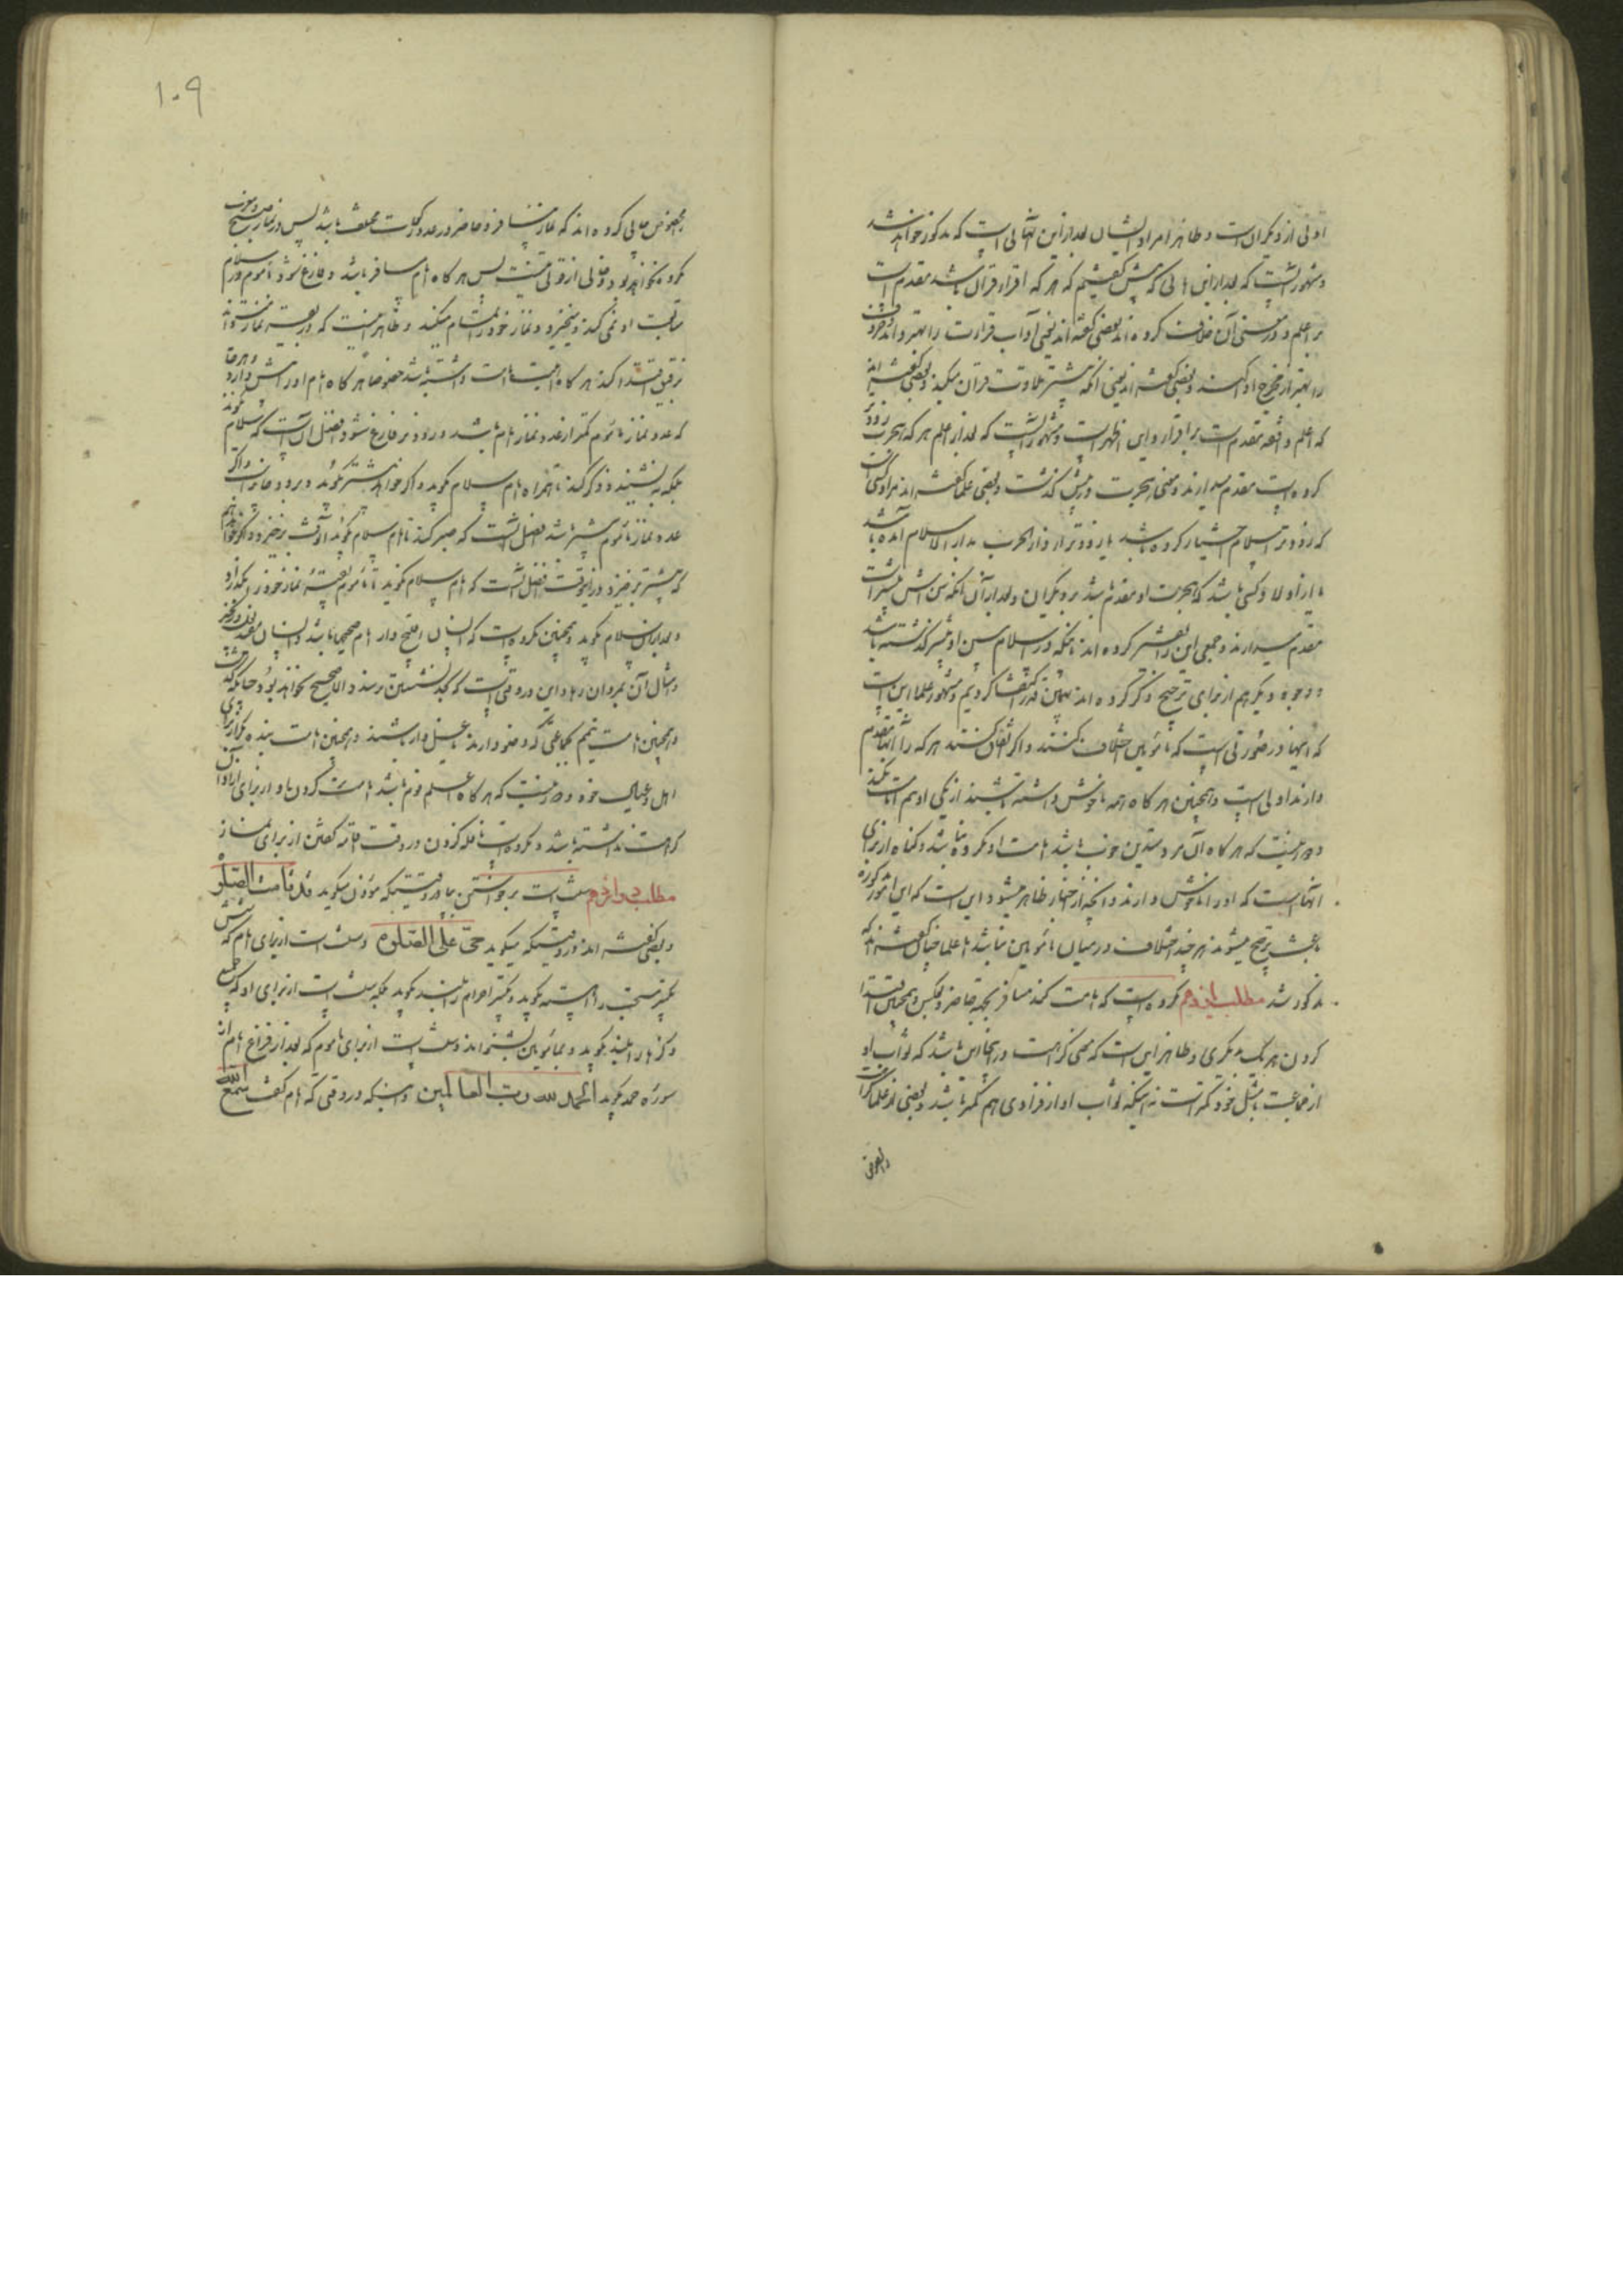 اولی از دیگران است و ظاهر امراد ایشان بعد از این آنهائی است که مذکور خواهند شد
و مشهور آنست که بعد از این هائی که پیش گفتیم که هر که اقرأ قرآن باشد مقدم است
بر اعلم و در معنی آن خلاف کرده اند بعضی گفته اند یعنی آداب قراءت را بهتر داند و حروف
را بهتر از مخرج ادا کند و بعضی گفته اند یعنی آنکه بیشتر تلاوت قرآن میکند و بعضی گفته اند
که اعلم و افقه مقدم است بر اقرأ و این اظهر است و مشهور آنست که بعد از اعلم هر که هجرت زودتر
کرده است مقدم میدارند و معنی هجرت در پیش گذشت و بعضی علما گفته اند مراد کسی است
که زودتر اسلام اختیار کرده باشد یا زودتر از دار الحرب بدار الاسلام آمده باشد
یا از اولاد کسی باشد که هجرت او مقدم باشد بر دیگران و بعد از آن آنکه سن اش بیشتر است
مقدم میدارند و جمعی این را تفسیر کرده اند بآنکه در اسلام سن او بیشتر گذشته باشد
و وجوه دیگر هم از برای ترجیح ذکر کرده اند بهمین قدر اکتفا کردیم و مشهور علما این است
که اینها در صورتی است که مأمومین اختلاف کنند و اگر اتفاق کنند هر که را آنها مقدم
دارند اولی است و همچنین هر گاه همه ناخوش داشته باشند از یکی او هم امامت نکند
و مراد اینست که هر گاه آن مرد متدین خوب باشد امامت او مکروه نباشد و گناه از برای
آنهاست که او را ناخوش دارند و آنچه از اخبار ظاهر میشود این است که این امور مذکوره
باعث ترجیح میشوند هر چند اختلاف در میان مأمومین نباشد اما علما چنان گفته اند که
مذکور شد مطلب یازدهم مکروه است که امامت کند مسافر بجهة حاضر و بعکس و همچنین اقتدا
کردن هر یک بدیگری و ظاهر این است که معنی کراهت در اینجا این باشد که ثواب او
از جماعت با مثل خود کمتر است نه اینکه ثواب او از فرادی هم کمتر باشد و بعضی از علما کراهت
را بصورتی
۱۰۹
مخصوص جائی کرده اند که نماز مسافر و حاضر در عدد رکعات مختلف باشد پس در نماز صبح و مغرب
مکروه نخواهد بود و خالی از قوتی نیست پس هر گاه امام مسافر باشد و فارغ شود مأموم در سلام
متابعت او نمی کند و میخیزد و نماز خود را تمام میکند و ظاهر اینست که در بقیه نماز میتواند
برفیق اقتدا کند هر گاه اهلیت امامت داشته باشد خصوصا هر گاه امام او را پیش دارد و هر جا
که عدد نماز مأموم کمتر از عدد نماز امام باشد و زودتر فارغ شود افضل آن است که سلام نگوید
بلکه بنشیند و ذکر کند تا همراه امام سلام بگوید و اگر خواهد پیشتر بگوید و برود جایز است و اگر
عدد نماز مأموم بیشتر باشد افضل آنست که صبر کند تا امام سلام بگوید آنوقت برخیزد و اگر خواهد هم
که پیشتر برخیزد و در اینوقت افضل آنست که امام سلام نگوید تا مأموم بقیه نماز خود را بگذارد
و بعد از آن سلام بگوید و همچنین مکروه است که انسان افلیج دار امام صحیح باشد
و مثال آن بمردان رها و این در وقتی است که بحد نشستن نرسد و الا صحیح نخواهد بود چنانکه گذشت
و همچنین امامت تیمم بجماعتی که وضو دارند یا غسل دار باشند و همچنین امامت بنده مگر از برای
اهل و عیال خود و مراد اینست که هر گاه اعلم قوم باشد امامت کردن با او از برای آن
کراهت نداشته باشد و مکروه است نافله کردن در وقت اقامه گفتن از برای نماز
مطلب دوازدهم سنت است برخواستن بنماز وقتیکه مؤذن میگوید قد قامت الصلوة
و بعضی گفته اند در وقتیکه میگوید حی علی الصلوة و سنت است از برای امام که شش
تکبیر مستحب را آهسته بگوید و تکبیر احرام را بلند بگوید بلکه سنت است از برای او که جمیع
ذکرها را بلند بگوید و بمأمومین بشنواند و سنت است از برای مأموم که بعد از فراغ امام از
سوره حمد بگوید الحمد لله رب العالمین و اینکه در وقتی که امام گفت سمع الله